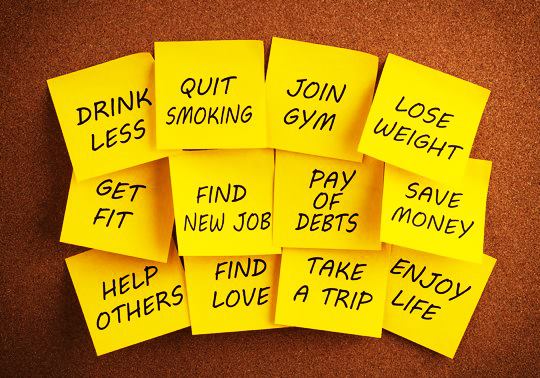 DRINK
LESS
QUIT
SMOKING
JOIN
GYM
LOSE
WEIGHT
GET
FIT
FIND
NEW JOB
PAY
OF
DEBTS
SAVE
MONEY
HELP
OTHERS
FIND
LOVE
TAKE
A TRIP
ENJOY
LIFE